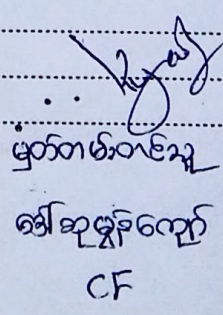 မှတ်တမ်းတင်သူ
ဒေါ်ဆုမွန်ကျော်
CF